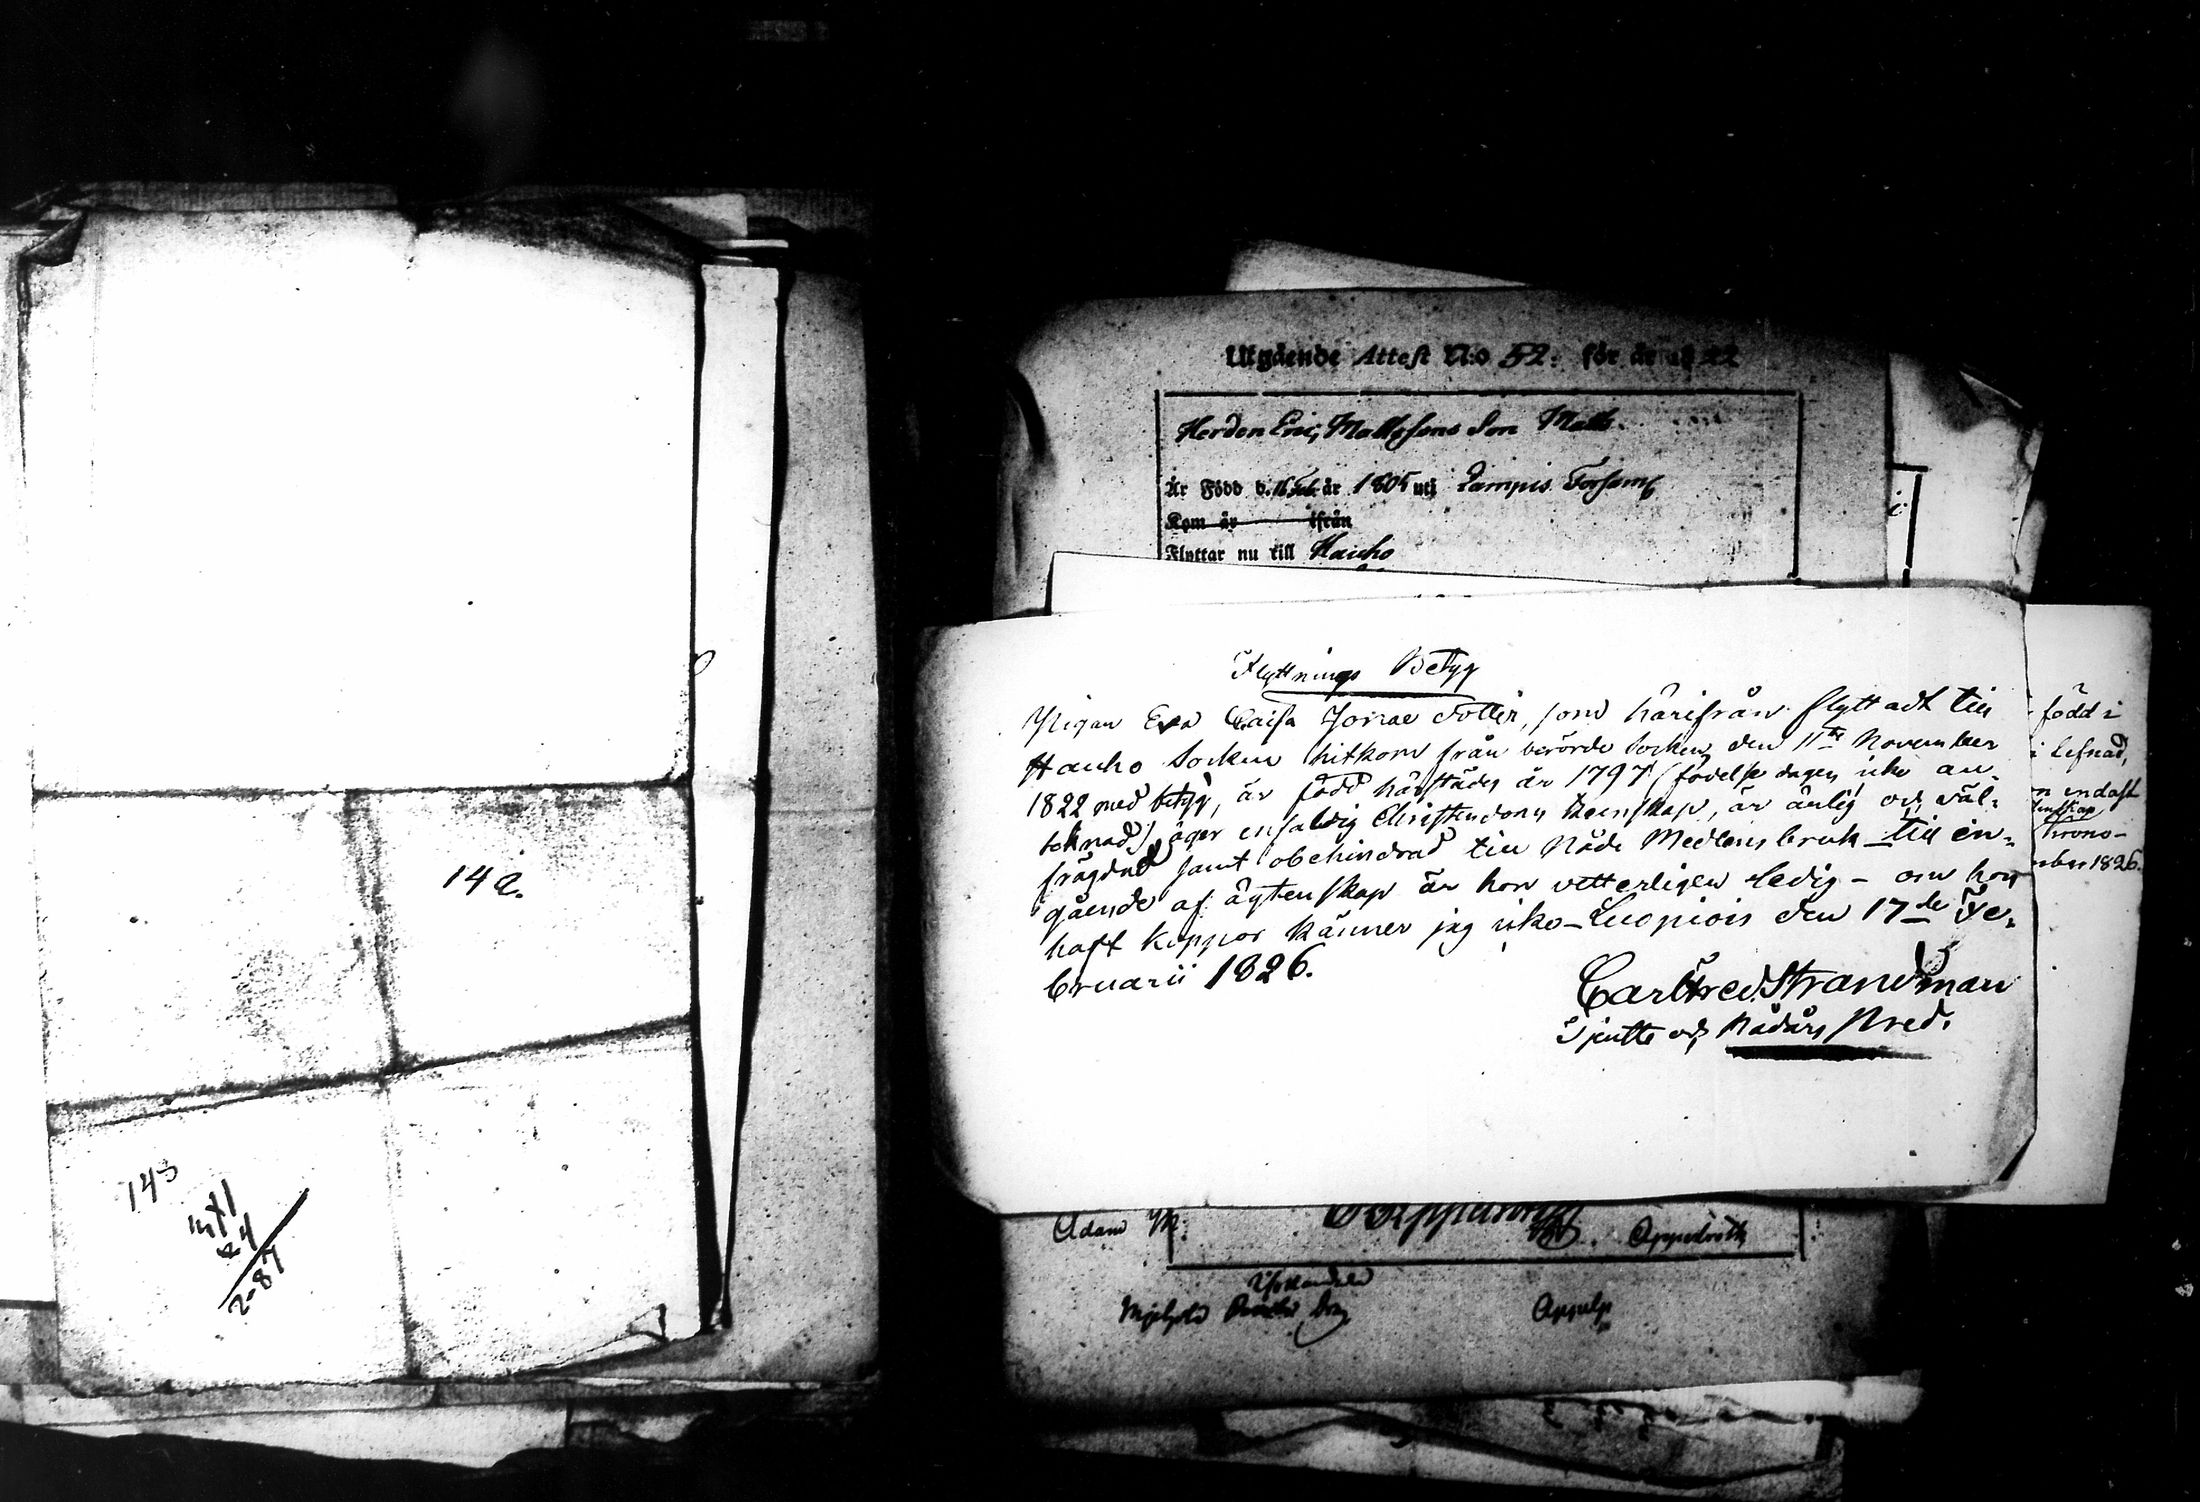 142.
143
mfl
24
2-87
Utgående Attest N:o 52. för år 1822
Herden Eric Mattssons Son Matts.
Är Född d. 16 Feb. år 1805 uti Lampis Församl
Kom år ifrån
Flyttar nu till Hauho
Flyttnings Betyg
Pigan Eva Caisa Jonae dotter, som härifrån flyttadt till
Hauho Socken hitkom från berörde Socken den 11te November
1822 med betyg, är född härstädes år 1797 (födelse dagen icke an-
teknad) äger enfaldig Christendoms kunskap, är ärlig och väl-
frägdad samt obehindrad till Nåde Medlens bruk - till in-
gående af ägtenskap är hon vetterligen ledig - om hon
haft koppor känner jag icke - Luopiois den 17de Fe-
bruarii 1826.
Carl Fred. Strandman
Tjentg och Nådårs Pred.
född i
lefnad,
endast
kunskap
Krono-
mber 1826.
Adam M: